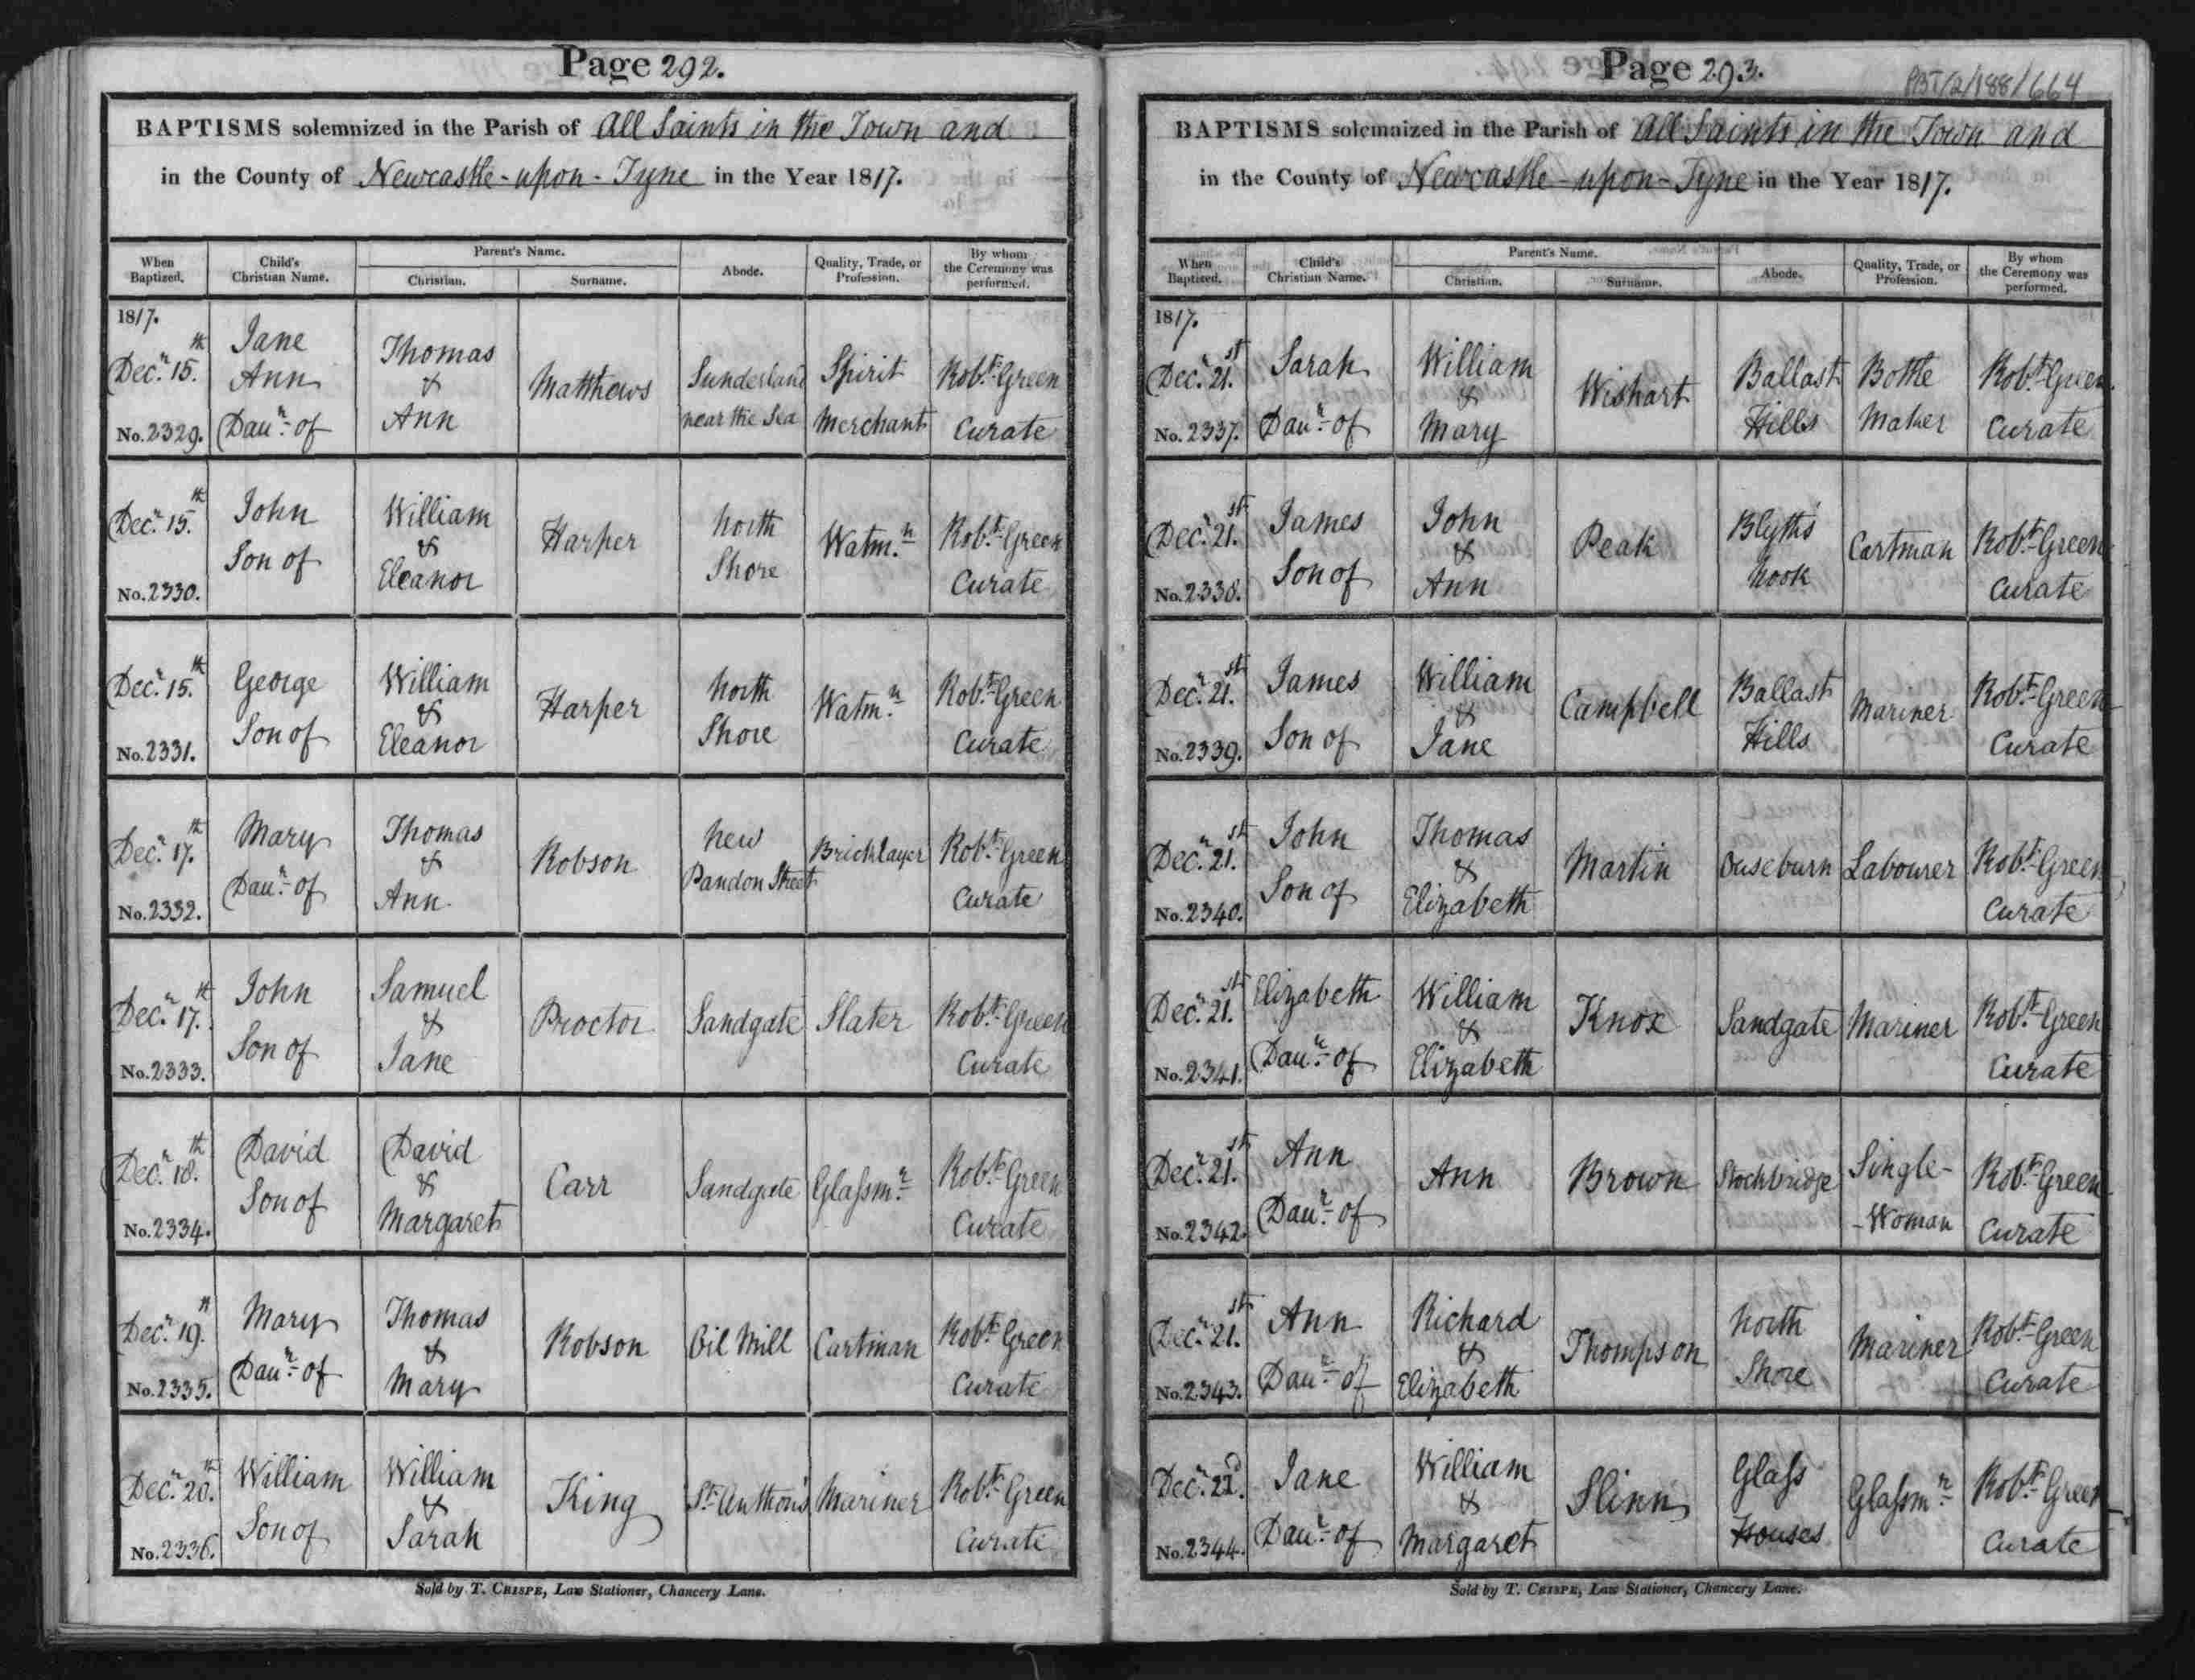 Page 292.
BAPTISMS solemnized in the Parish of All Saints in the Town and
in the County of Newcastle-upon-Tyne in the Year 1817.
When Baptized.
Child's Christian Name.
Parent's Name.
Christian.
Surname.
Abode.
Quality, Trade, or Profession.
By whom the Ceremony was performed.
1817.
Decr. 15th
No. 2329.
Jane
Ann
Daur. of
Thomas
&
Ann
Matthews
Sunderland
near the Sea
Spirit
Merchant
Robt. Green
Curate
Decr. 15th
No. 2330.
John
Son of
William
&
Eleanor
Harper
North
Shore
Watmn.
Robt. Green
Curate
Decr. 15th
No. 2331.
George
Son of
William
&
Eleanor
Harper
North
Shore
Watmn.
Robt. Green
Curate
Decr. 17th
No. 2332.
Mary
Daur. of
Thomas
&
Ann
Robson
New
Pandon Street
Bricklayer
Robt. Green
Curate
Decr. 17th
No. 2333.
John
Son of
Samuel
&
Jane
Proctor
Sandgate
Slater
Robt. Green
Curate
Decr. 18th
No. 2334.
David
Son of
David
&
Margaret
Carr
Sandgate
Glassmn.
Robt. Green
Curate
Decr. 19th
No. 2335.
Mary
Daur. of
Thomas
&
Mary
Robson
Oil Mill
Cartman
Robt. Green
Curate
Decr. 20th
No. 2336.
William
Son of
William
&
Sarah
King
St. Anthon's
Mariner
Robt. Green
Curate
Sold by T. CRISPE, Law Stationer, Chancery Lane.
Page 293.
PBT/2/188/664
BAPTISMS solemnized in the Parish of All Saints in the Town and
in the County of Newcastle-upon-Tyne in the Year 1817.
When Baptized.
Child's Christian Name.
Parent's Name.
Christian.
Surname.
Abode.
Quality, Trade, or Profession.
By whom the Ceremony was performed.
1817.
Decr. 21st
No. 2337.
Sarah
Daur. of
William
&
Mary
Wishart
Ballast
Hills
Bottle
Maker
Robt. Green
Curate
Decr. 21st
No. 2338.
James
Son of
John
&
Ann
Peak
Blyth's
Nook
Cartman
Robt. Green
Curate
Decr. 21st
No. 2339.
James
Son of
William
&
Jane
Campbell
Ballast
Hills
Mariner
Robt. Green
Curate
Decr. 21st
No. 2340.
John
Son of
Thomas
&
Elizabeth
Martin
Ouseburn
Labourer
Robt. Green
Curate
Decr. 21st
No. 2341.
Elizabeth
Daur. of
William
&
Elizabeth
Knox
Sandgate
Mariner
Robt. Green
Curate
Decr. 21st
No. 2342.
Ann
Daur. of
Ann
Brown
Stockbridge
Single-
-Woman
Robt. Green
Curate
Decr. 21st
No. 2343.
Ann
Daur. of
Richard
&
Elizabeth
Thompson
North
Shore
Mariner
Robt. Green
Curate
Decr. 22d.
No. 2344.
Jane
Daur. of
William
&
Margaret
Slinn
Glass
Houses
Glassmn.
Robt. Green
Curate
Sold by T. CRISPE, Law Stationer, Chancery Lane.